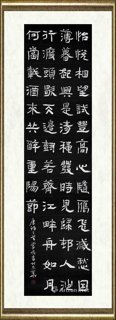 怡悅相望試登高心隨鴈飛滅愁因
薄暮起興是清秋發時見歸邨人沙
行渡頭歇天邊樹若薺江畔舟如月
何當載酒來共醉重陽節